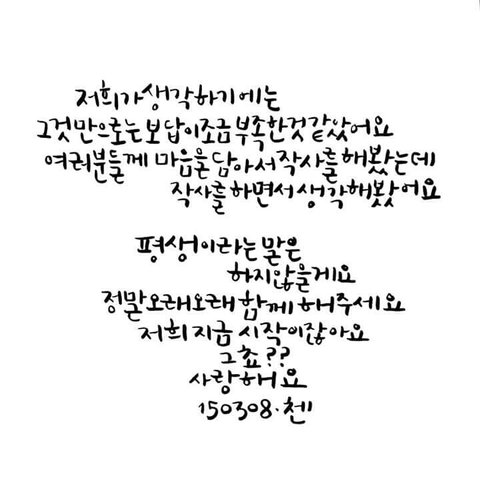 저희가 생각하기에는
그것만으로는 보답이 조금 부족한것 같았어요
여러분들께 마음을 담아서 작사를 해봤는데
작사를 하면서 생각해봤어요
평생이라는 말은
하지 않을게요
정말 오래오래 함께 해주세요
저희 지금 시작이잖아요
그쵸??
사랑해요
150308. 첸